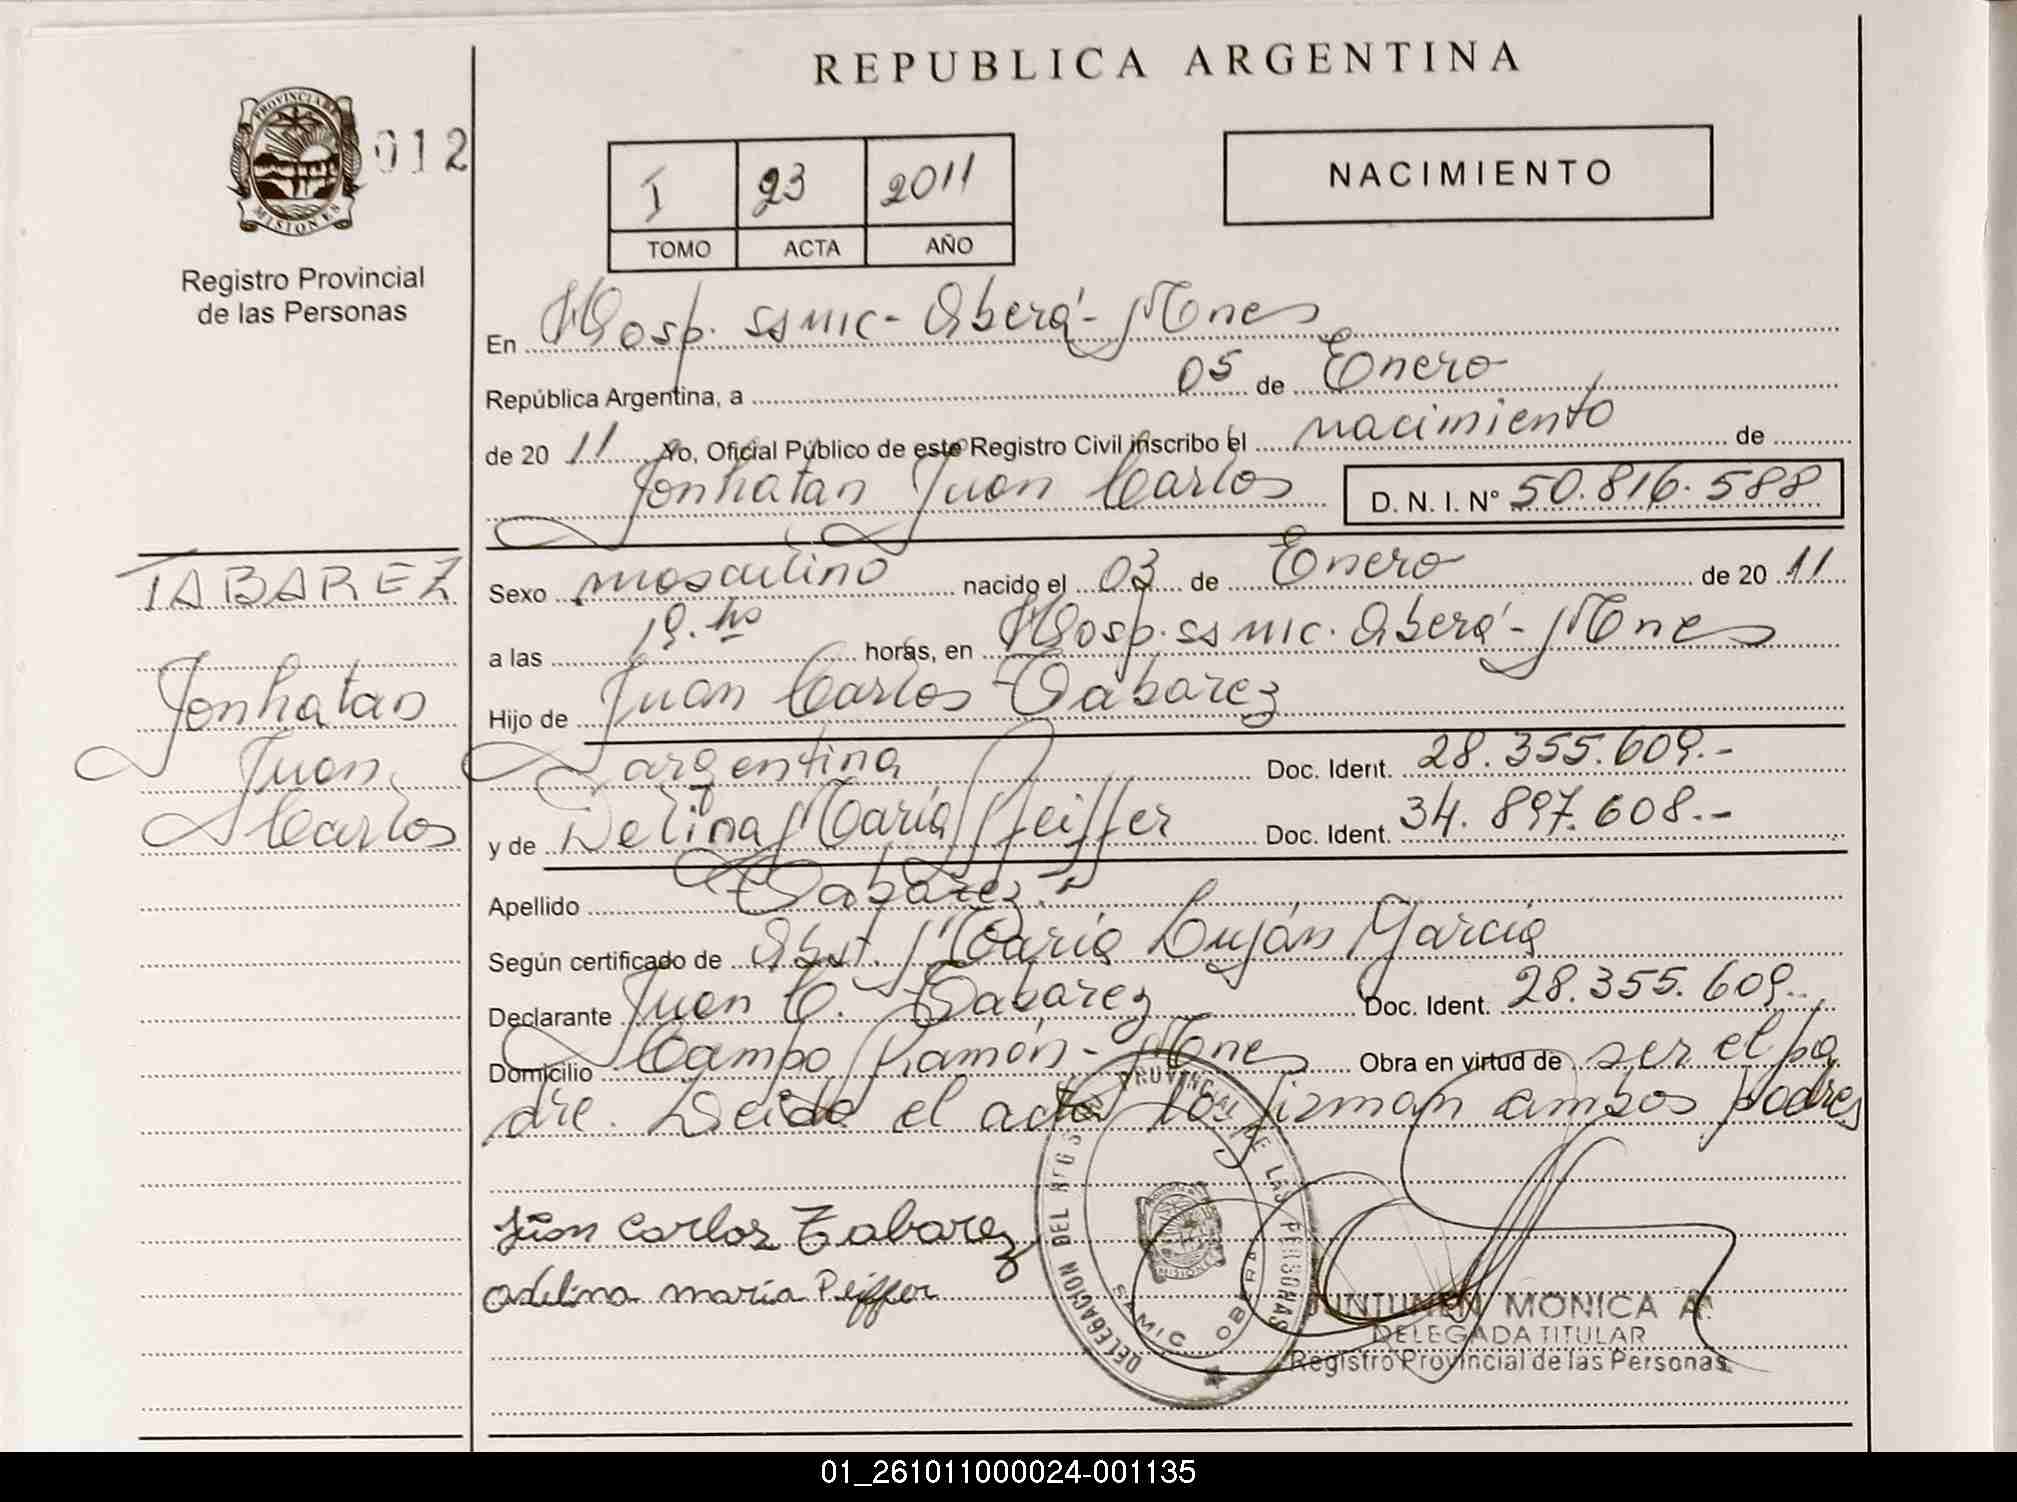 REPUBLICA ARGENTINA
PROVINCIA DE
MISIONES
012
Registro Provincial
de las Personas
I 23 2011
TOMO ACTA AÑO
NACIMIENTO
En Hosp. SAMIC - Oberá - Mnes
República Argentina, a 05 de Enero
de 20 11 Yo, Oficial Público de este Registro Civil inscribo el nacimiento de
Jonhatan Juan Carlos D. N. I. Nº 50.816.588
TABAREZ
Jonhatan
Juan
Carlos
Sexo masculino nacido el 03 de Enero de 20 11
a las 19. hs horas, en Hosp. SAMIC. Oberá - Mnes
Hijo de Juan Carlos Tabarez
argentina Doc. Ident. 28.355.609.-
y de Delina María Pfeiffer Doc. Ident. 34.897.608.-
Apellido "Tabarez"
Según certificado de Obst. María Luján García
Declarante Juan C. Tabarez Doc. Ident. 28.355.609.
Domicilio Campo Ramón - Mnes Obra en virtud de ser el pa
dre. Leida el acta la firman ambos padres
Juan Carlos Tabarez
adelina maria Peiffer
DELEGACION DEL REGISTRO PROVINCIAL DE LAS PERSONAS
SAMIC OBERA
MISIONES
MONICA A.
DELEGADA TITULAR
Registro Provincial de las Personas
01_261011000024-001135